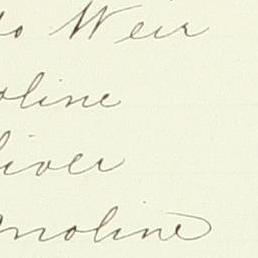 do Weir
oline
liver
moline